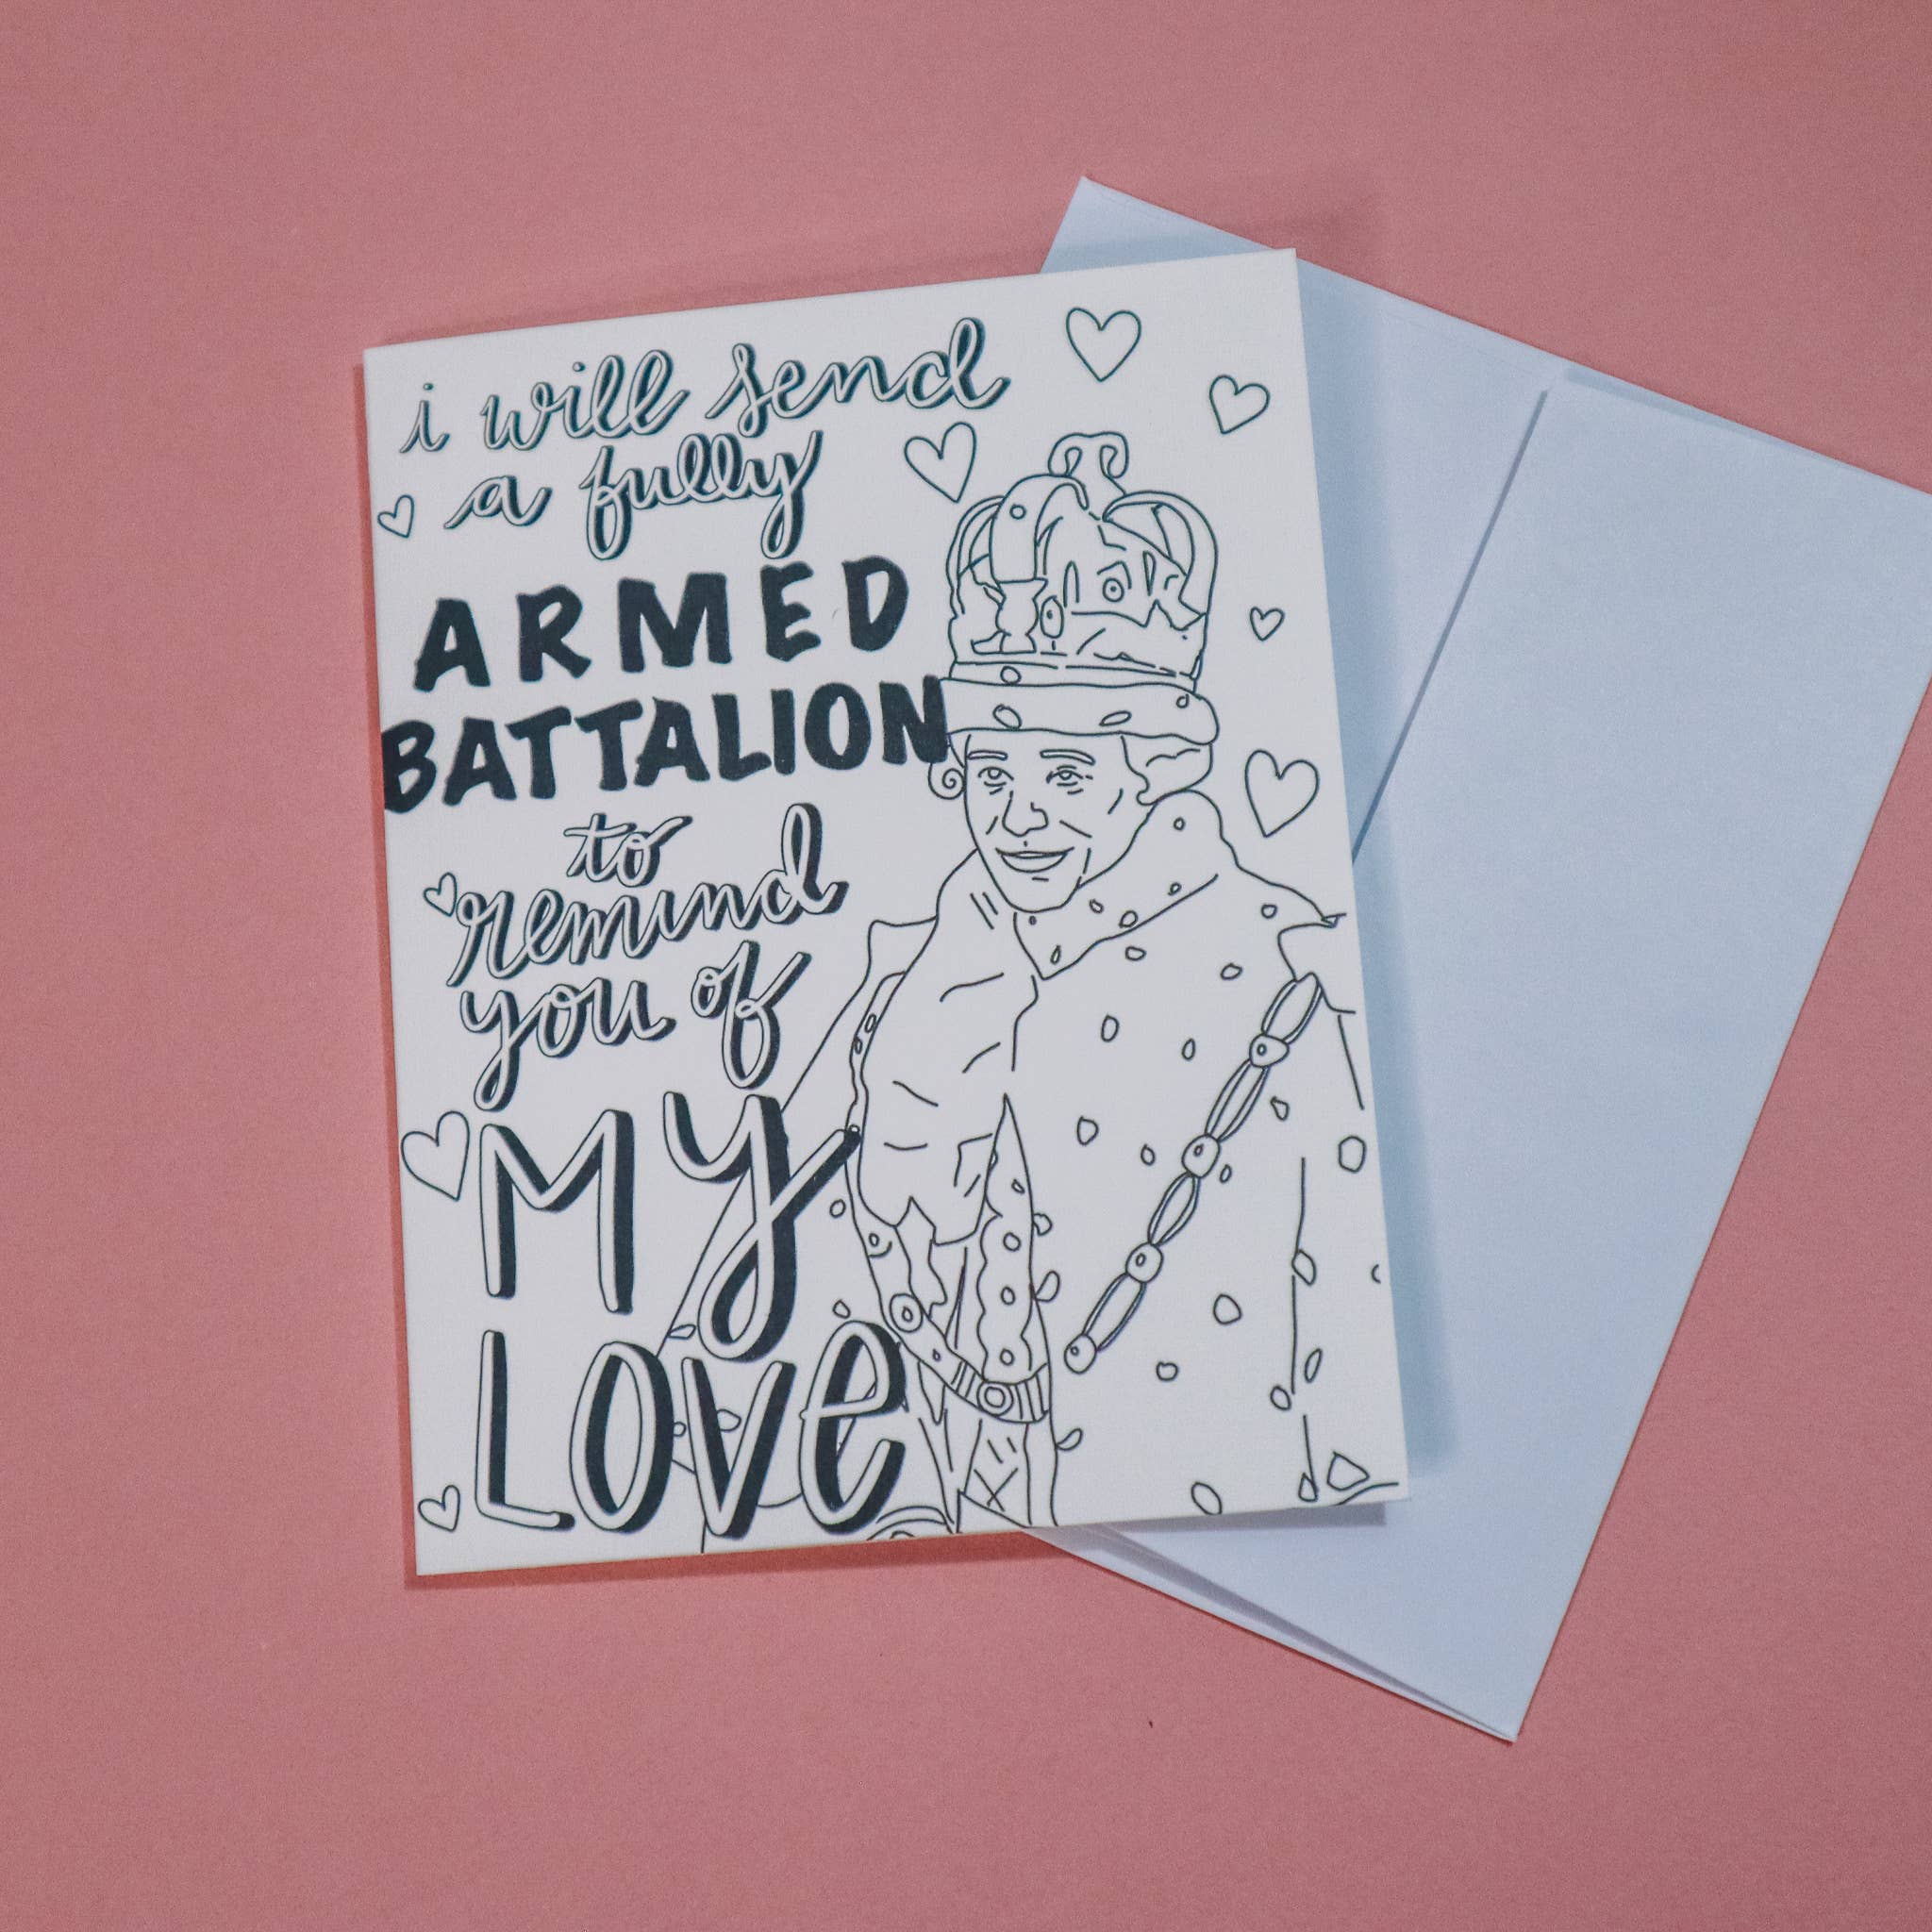 i will send
a fully
ARMED
BATTALION
to
remind
you of
MY
LOVe